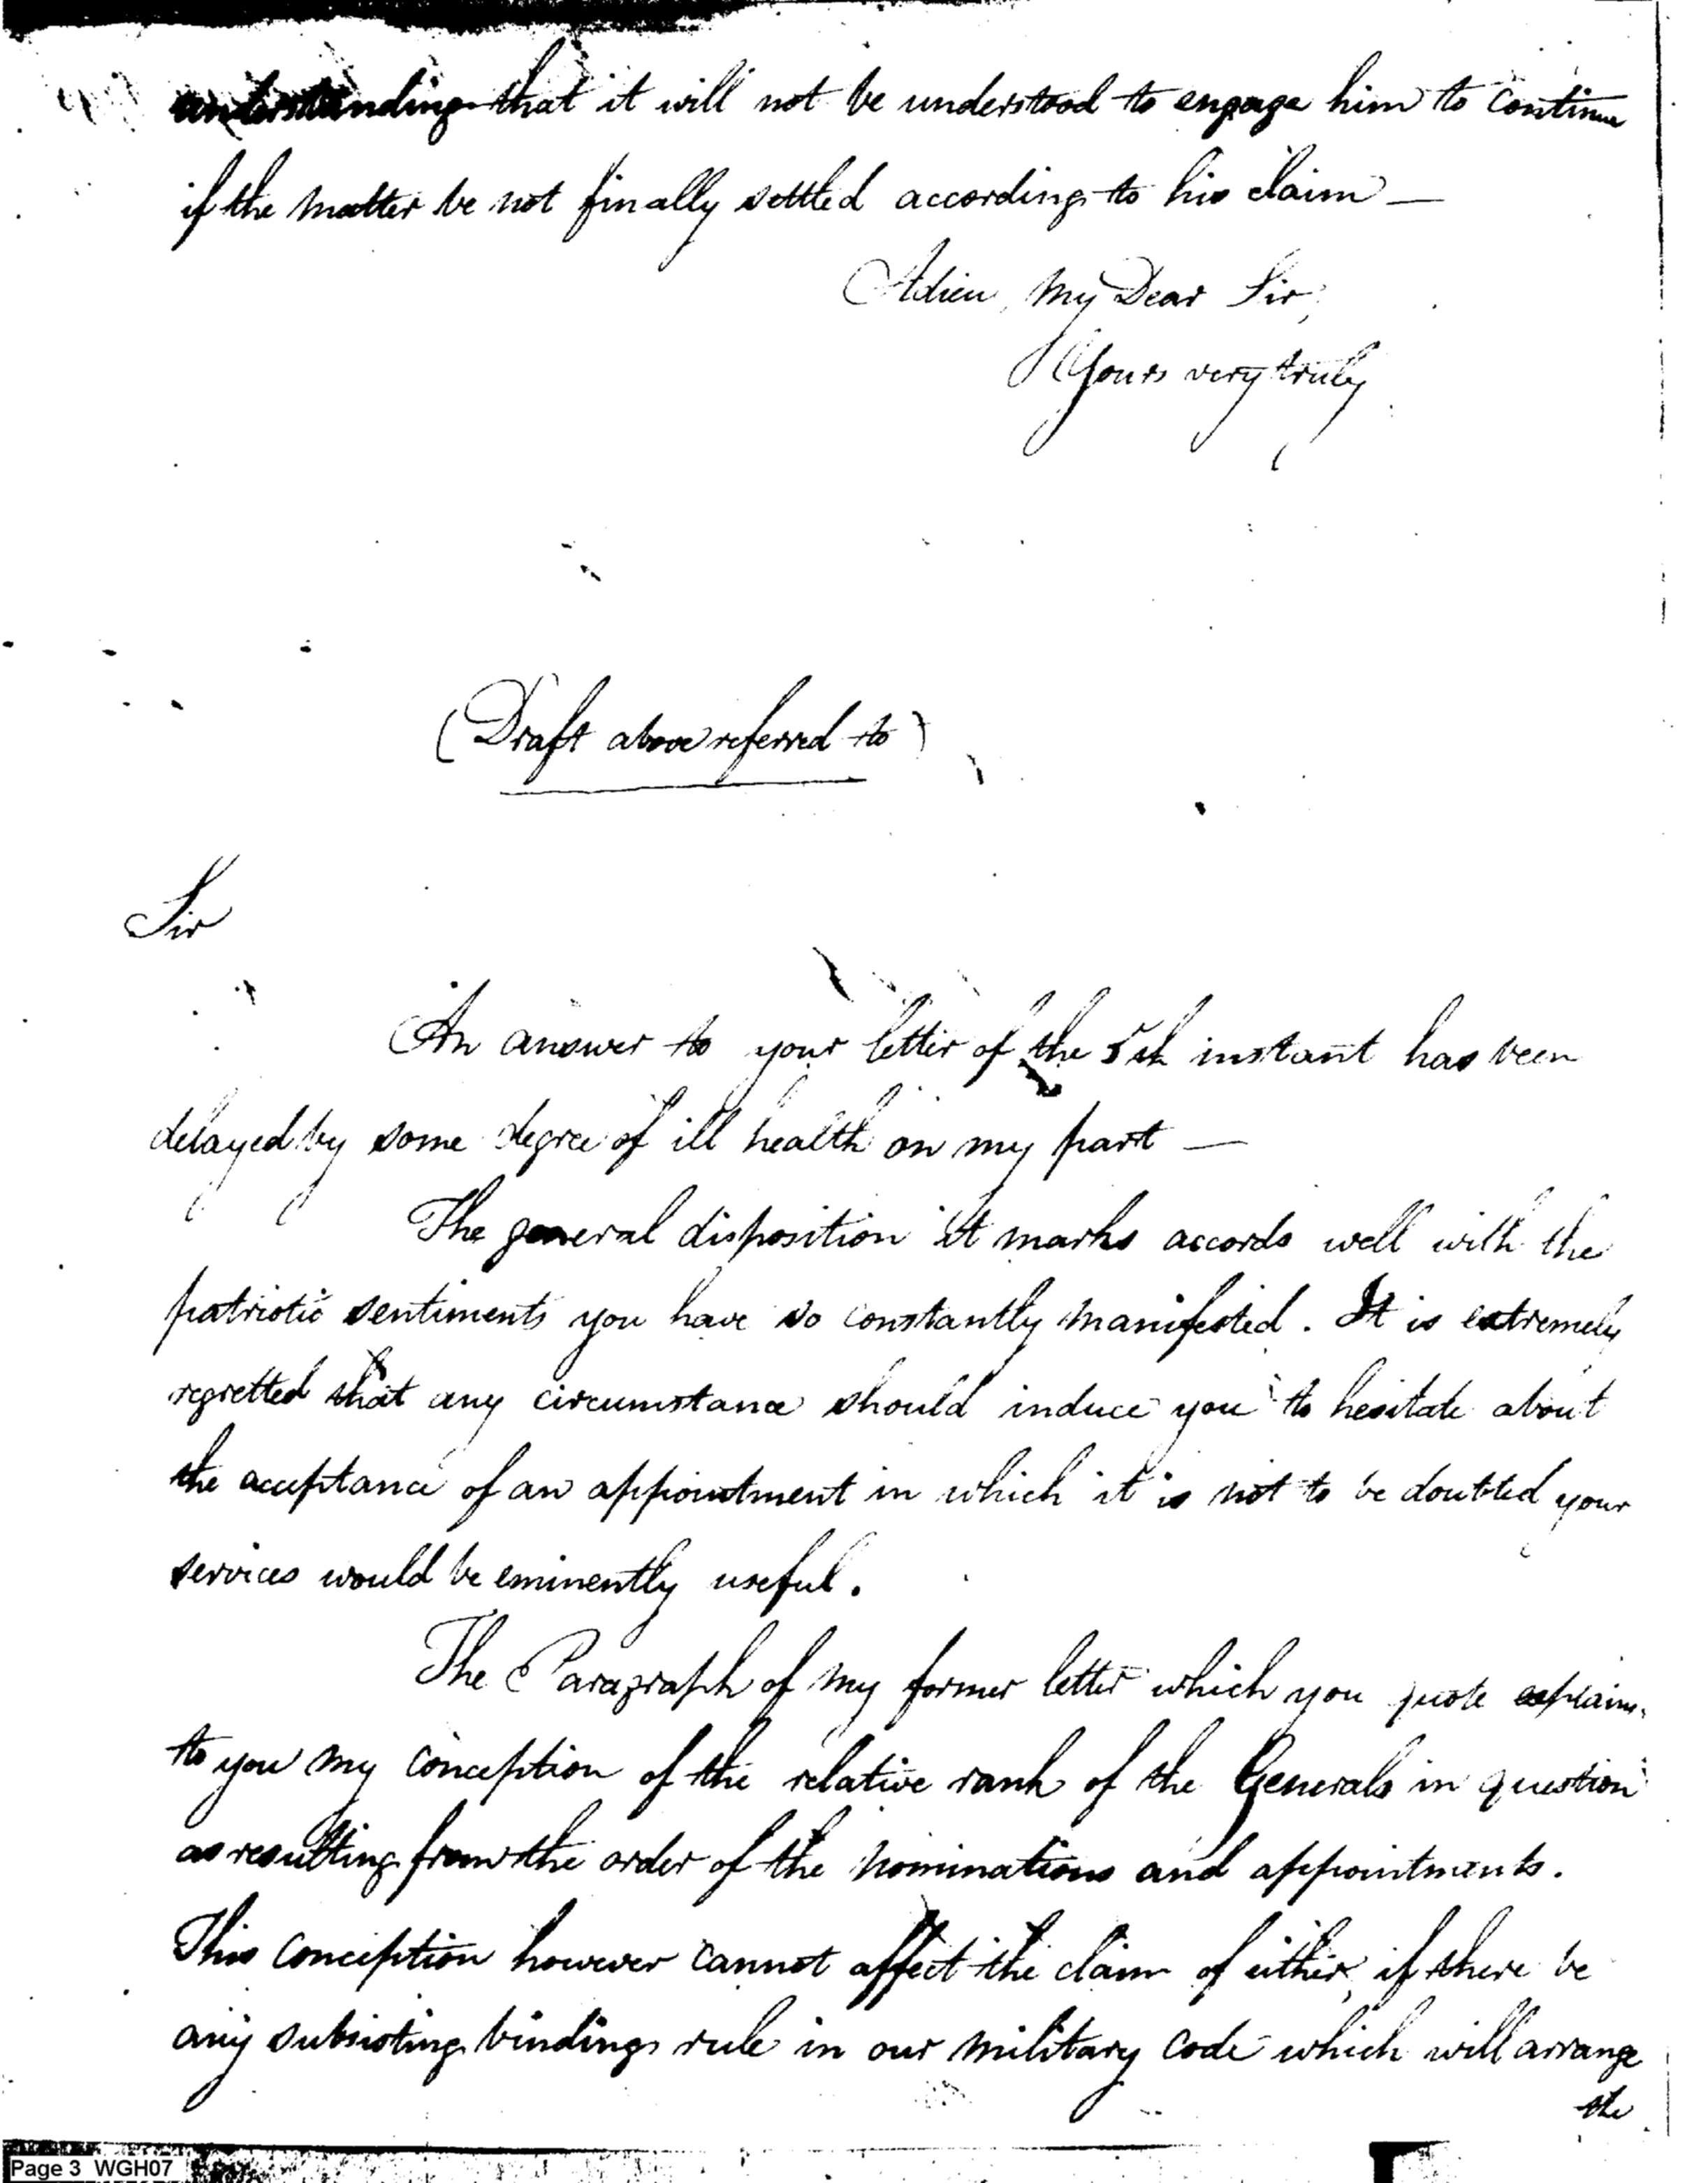 understanding that it will not be understood to engage him to continue
if the matter be not finally settled according to his claim —
Adieu, My Dear Sir,
Yours very truly
(Draft above referred to)
Sir
An answer to your letter of the 5th instant has been
delayed by some degree of ill health on my part —
The general disposition it marks accords well with the
patriotic sentiments you have so constantly manifested. It is extremely
regretted that any circumstance should induce you to hesitate about
the acceptance of an appointment in which it is not to be doubted your
services would be eminently useful.
The Paragraph of my former letter which you quote explains
to you my conception of the relative rank of the Generals in question
as resulting from the order of the nominations and appointments.
This conception however cannot affect the claim of either, if there be
any subsisting binding rule in our military code which will arrange
the
Page 3 WGH07